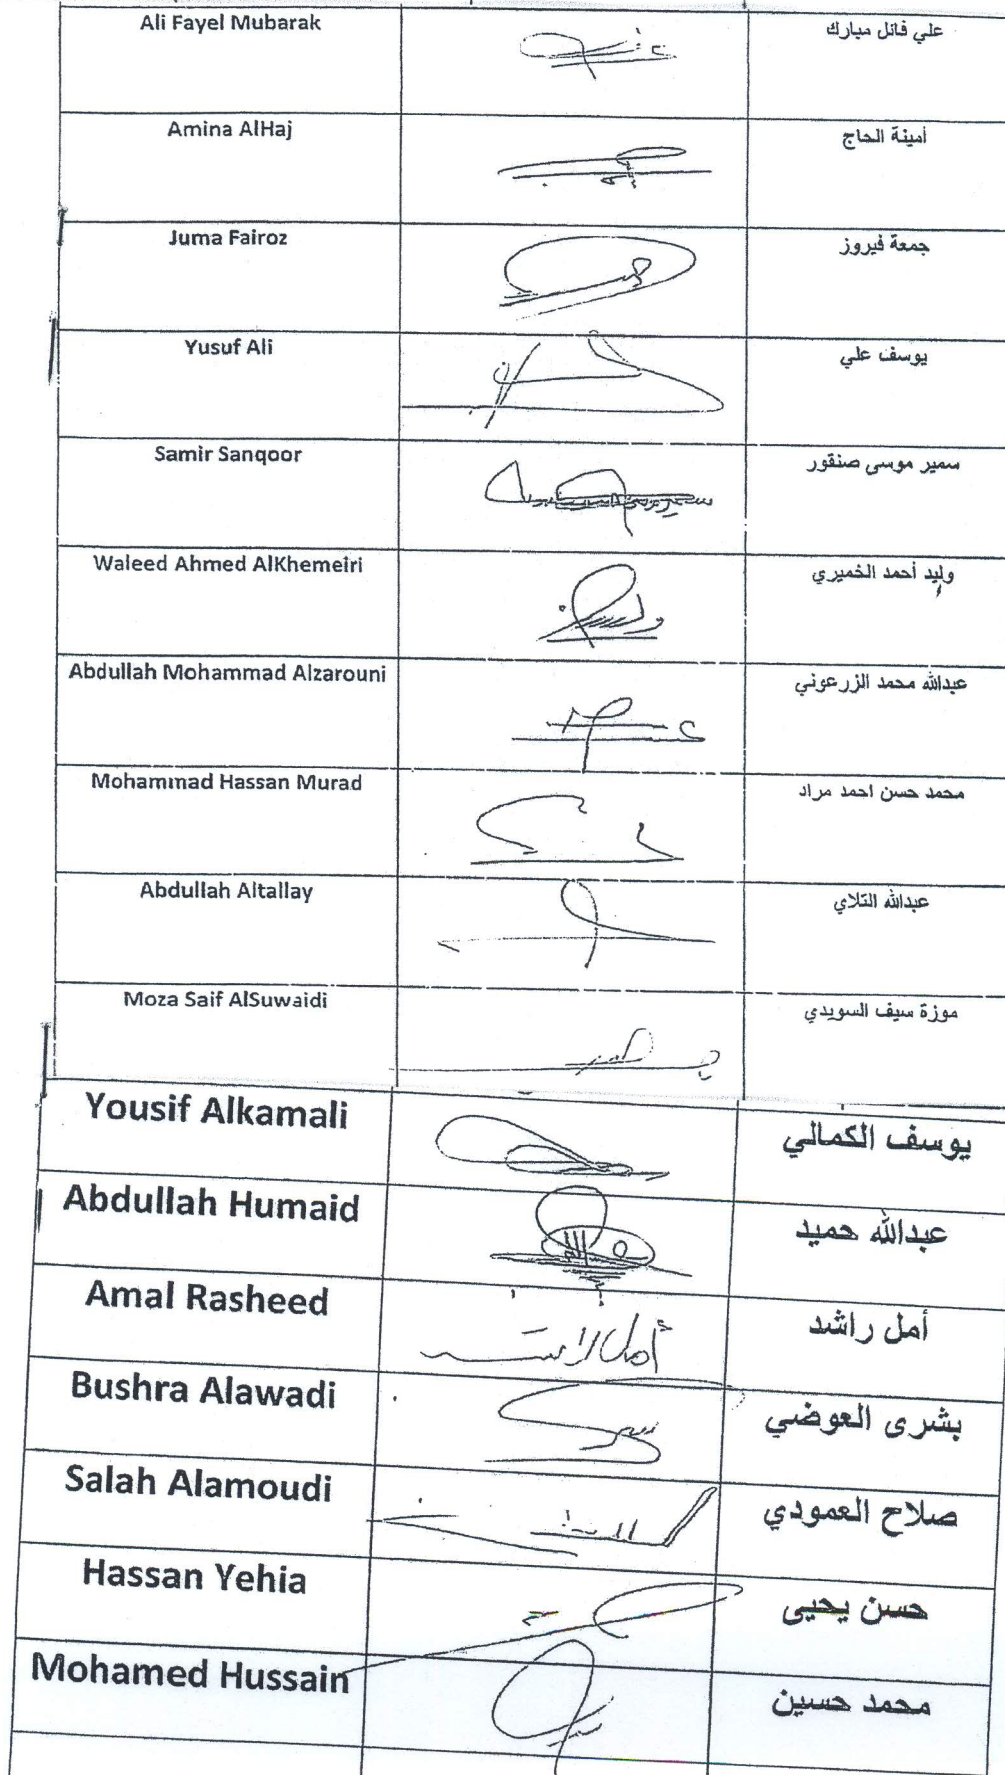 Ali Fayel Mubarak علي فائل مبارك
Amina AlHaj أمينة الحاج
Juma Fairoz جمعة فيروز
Yusuf Ali يوسف علي
Samir Sanqoor سمير موسى صنقور
Waleed Ahmed AlKhemeiri وليد أحمد الخميري
Abdullah Mohammad Alzarouni عبدالله محمد الزرعوني
Mohammad Hassan Murad محمد حسن احمد مراد
Abdullah Altallay عبدالله التلاي
Moza Saif AlSuwaidi موزة سيف السويدي
Yousif Alkamali يوسف الكمالي
Abdullah Humaid عبدالله حميد
Amal Rasheed أمل راشد أمل راشد
Bushra Alawadi بشرى العوضي
Salah Alamoudi صلاح العمودي
Hassan Yehia حسن يحيى
Mohamed Hussain محمد حسين